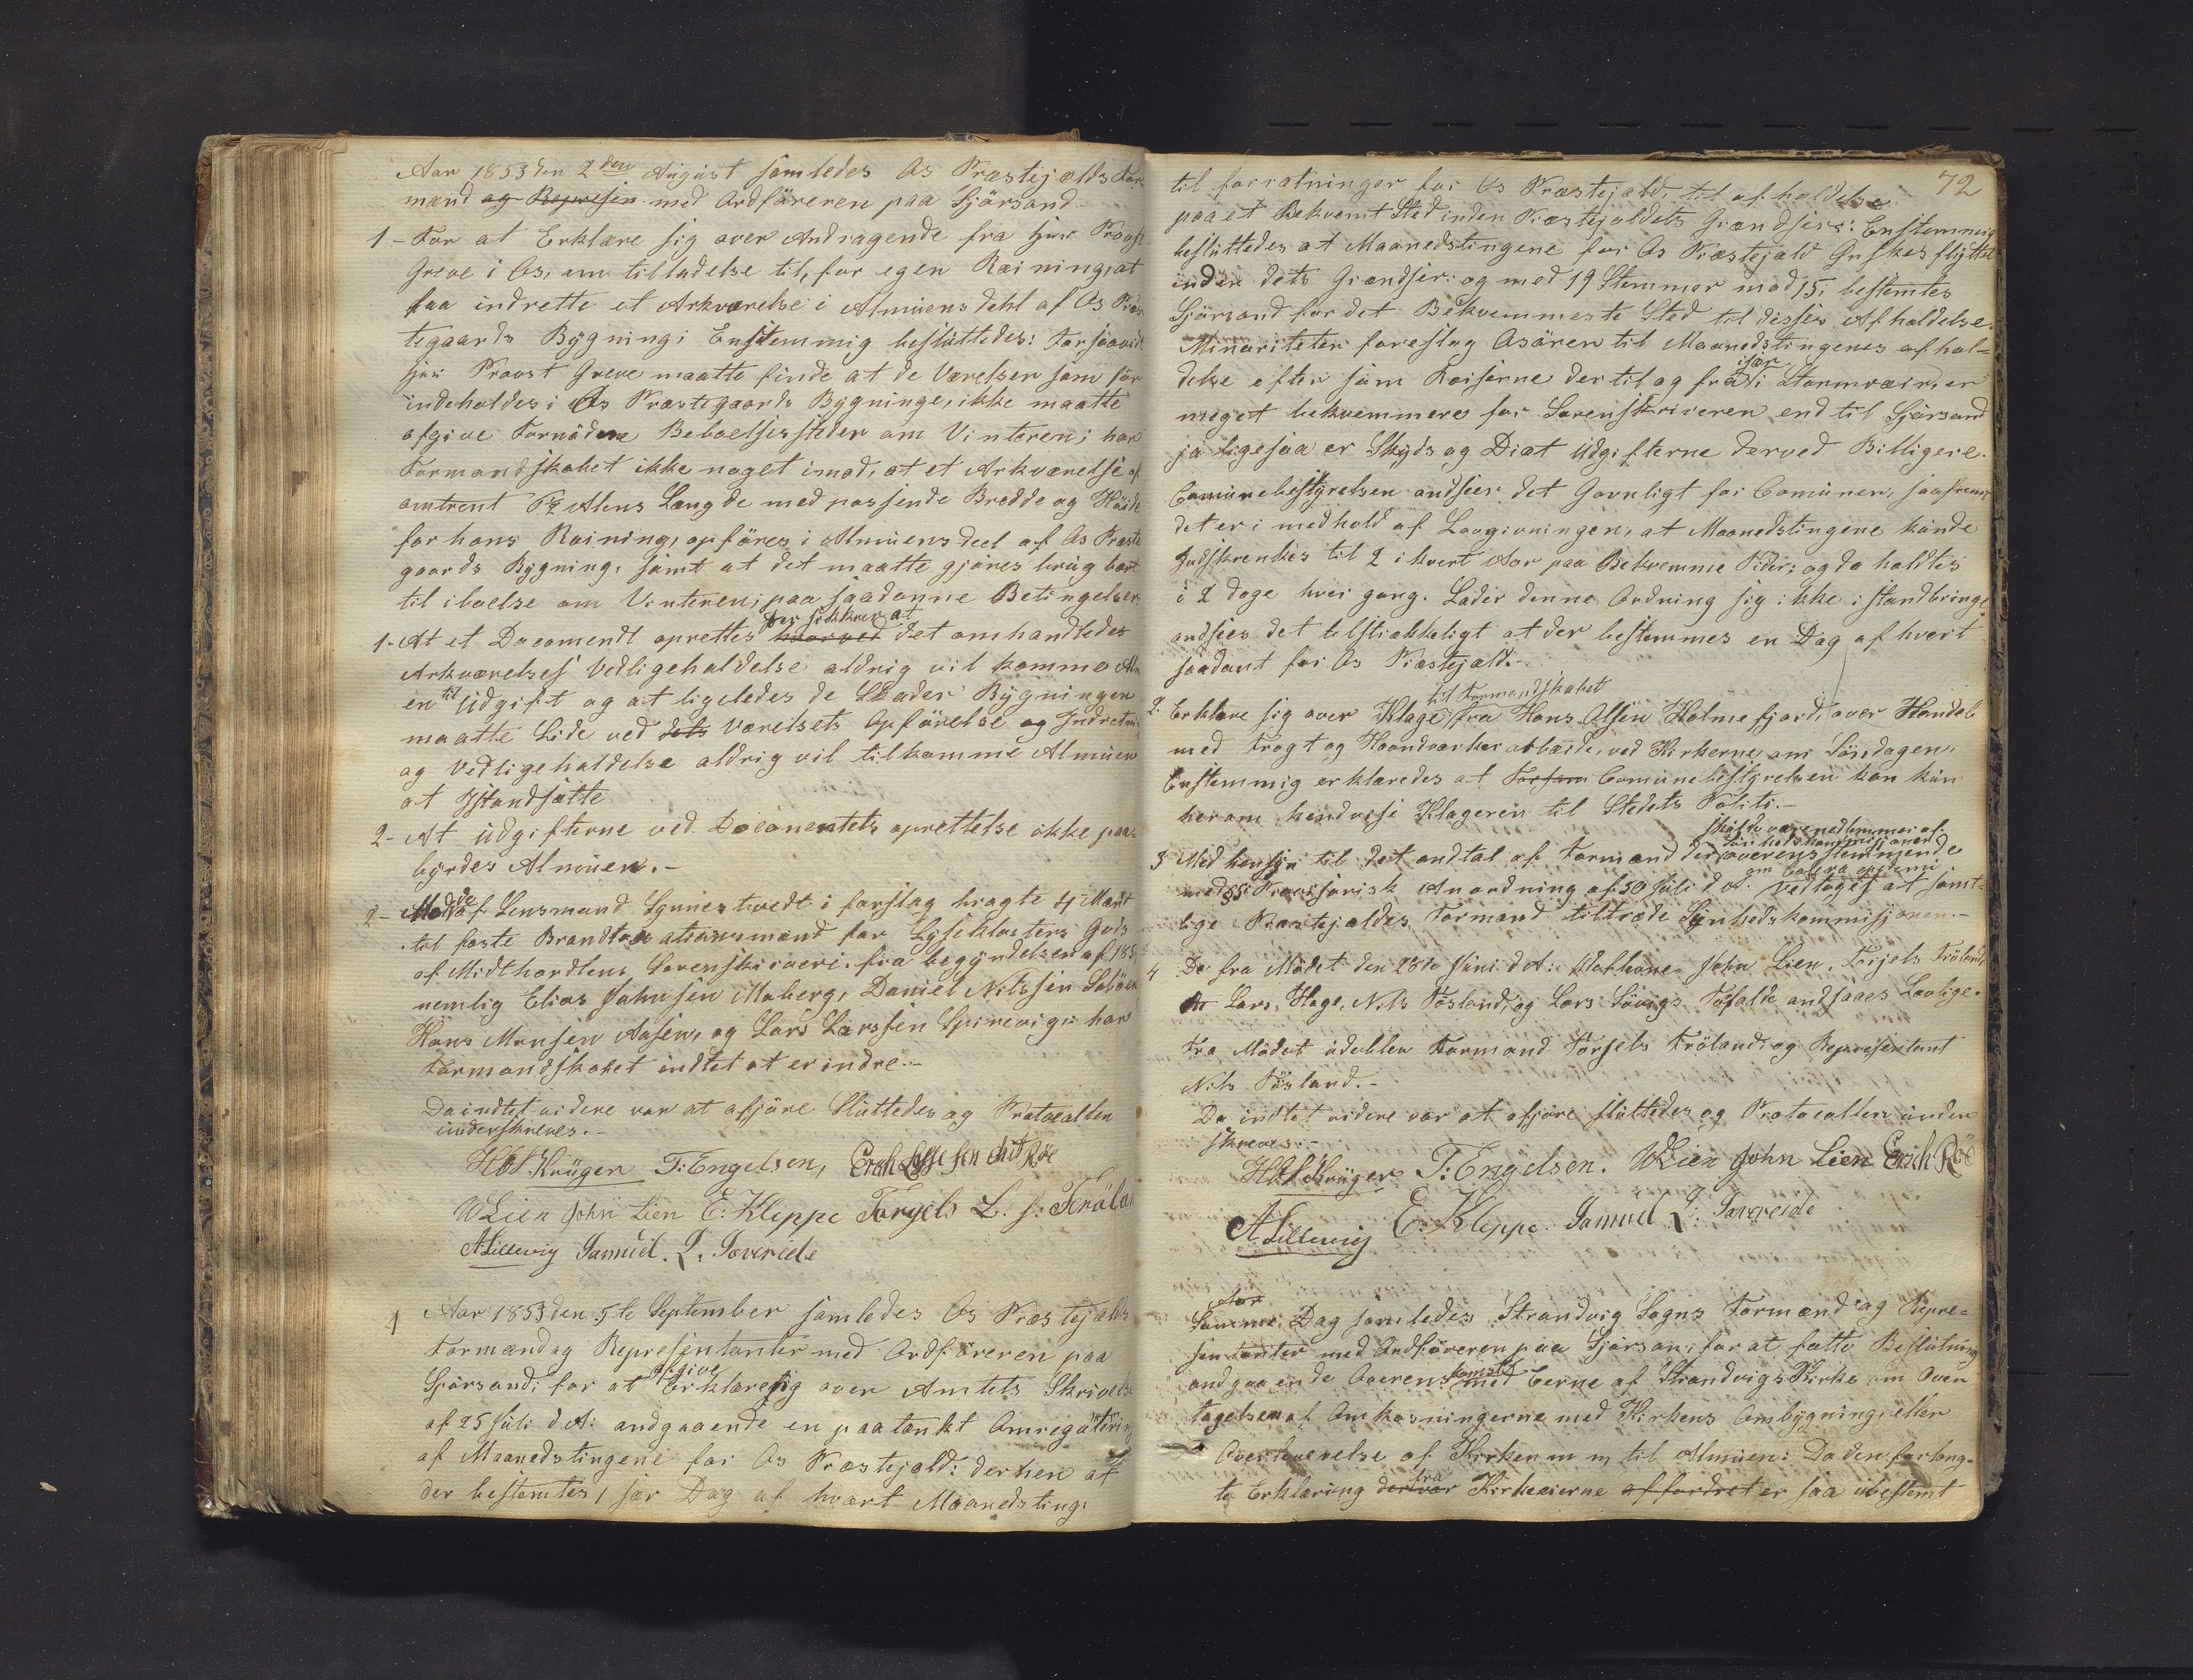 Aar 1853 den 2den August samledes Os Præstejælds For-
mænd og Represen med Ordføreren paa Sjørsand
1- For at Erklære sig over Andragende fra hr. Provst
Greve i Os, om tilladelse til, for egen Reining, at
faa indrette et Arkværelse i Almuens dehl af Os Præs-
tegaards Bygning; Enstemmig besluttedes: Forsaavidt
hr. Provst Greve maatte finde at de Værelser som før
indeholdes i Os Præstegaards Bygninge, ikke maatte
afgive Fornødne Beboelsessteder om Vinteren; har
Formandskabet ikke noget imod, at et Arkværelse af
omtrent Alens Længde med passende Bredde og Høide
for hans Reining, opføres i Almuens deel af Os Præste
gaards Bygning, samt at det maatte gjøres brugbart
til iboelse om Vinteren; paa saadanne Betingelser:
der sikkrer at
1- At et Docomendt oprettes hvorved det omhandledes
Arkværelses Vedligeholdelse aldrig vil komme Alm
en til Udgift og at ligeledes de Skader Bygningen
maatte Lide ved dets Værelsets Opførelse og Indretni
og Vedligeholdelse aldrig vil tilkomme Almuen
at Istandsætte
2- At Udgifterne ved Docomentets oprettelse ikke paa-
byrdes Almuen.-
2- Mod de af Lensmand Lynnestvedt i forslag bragte 4 Mænd
til faste Brandtaxationsmænd for Lyseklosters Gods
af Midthordlens Sorenskriveri fra begyndelsen af 185
nemlig Elias Johnsen Moberg, Daniel Nilssen Søbøen
Hans Monsen Aasen, og Lars Larssen Spirevig: har
Formandskabet indtet at erindre.-
Da indtet videre var at afgjøre Sluttedes og Protocollen
underskreves.-
HOF Krüger T: Engelsen, Erich Røe
WLien John Lien E: Kleppe Torgels L. s: Frøland
A Lillevig Samuel. Q. Søvreide
1 Aar 1853 den 5te September samledes Os Præstejælds
Formænd og Representanter med Ordføreren paa
afgive
Sjørsand; for at Erklære sig over Amtets Skrivelse
af 25 Juli d A: andgaaende en paatænkt Omregulering
af Maanedstingene for Os Præstejæld: derhen at
der bestemtes, sær Dag af hvært Maanedsting.
72
til forretninger for Os Præstejæld til afholdelse
paa et Bekvemt Sted inden Præstejældets Grændser: Enstemmig
besluttedes at Maanedstingene for Os Præstejæld Ønskes flyttet
inden dets Grændser: og med 19 Stemmer mod 15, bestemtes
Sjørsand for det Bekvemmeste Sted til disses Afholdelse.
Minoriteten foreslog Osøren til Maanedstingenes afhol-
især
delse efter som Reiserne dertil og fra i Stormveir, er
meget bekvemmere for Sorenskriveren end til Sjørsand
ja ligesaa er Skyds og Diæt Udgifterne derved Billigere.
Comunebestyrelsen andseer det Gavnligt for Comunen, saafremt
det er i medhold af Lovgivningen, at Maanedstingene kunde
Indskrenkes til 2 i hvert Aar paa Bekvemme Tider; og da holdtes
i 2 dage hver gang. Lader denne Ordning sig ikke i standbringe
andsees det tilstrækkeligt at der bestemmes en Dag af hvert
saadant for Os Præstejæld.-
til Formandskabet
2. Erklære sig over Klage fra Hans Olsen Holmefjord, over Handel
med Fragt og Haandværker arbeide, ved Kirkerne om Søndagen.
Enstemmig erklæredes at Forsam Comunebestyrelsen kan kun
herom henvise Klageren til Stedets Politi.-
skulde være medlemmer af
Sundhedskommissionen
3 Med hensyn til det andtal af Formænd der overensstemmende
om Colera epidemi
med § 5 i Provisorisk Anordning af 30 Juli d A. vedtoges at samt-
lige Præstejældes Formænd tiltræde Synhedskommissjonen.-
4 De fra Mødet den 28de Juni d A: udeblevne John Lien, Torjels Frøland,
Lars Hage, Nils Tøsland, og Lars Søvigs Forfald andsaaes Lovlige.
Fra Mødet udeblev Formand Torjels Frøland, og Representant
Nils Tøsland.-
Da indtet videre var at afgjøre sluttedes og Protocollen under
skreves.-
HOF Krüger T: Engelsen. WLien John Lien Erich Røe
A Lillevig E: Kleppe. Samuel Q: Søvreide
Aar
Samme Dag samledes Strandvig Sogns Formænd og Repre-
sentanter med Ordføreren paa Sjørsan: for at fatte Beslutning
komst
andgaaende Overens med Eerne af Strandvigs Kirke om Over
tagelsen af Omkosningerne med Kirkens Ombygning, eller
Overleverelse af Kirken m m til Almuen: Da den forlang-
fra
te Erklæring derover Kirkeeierne affordret er saa ubestemt